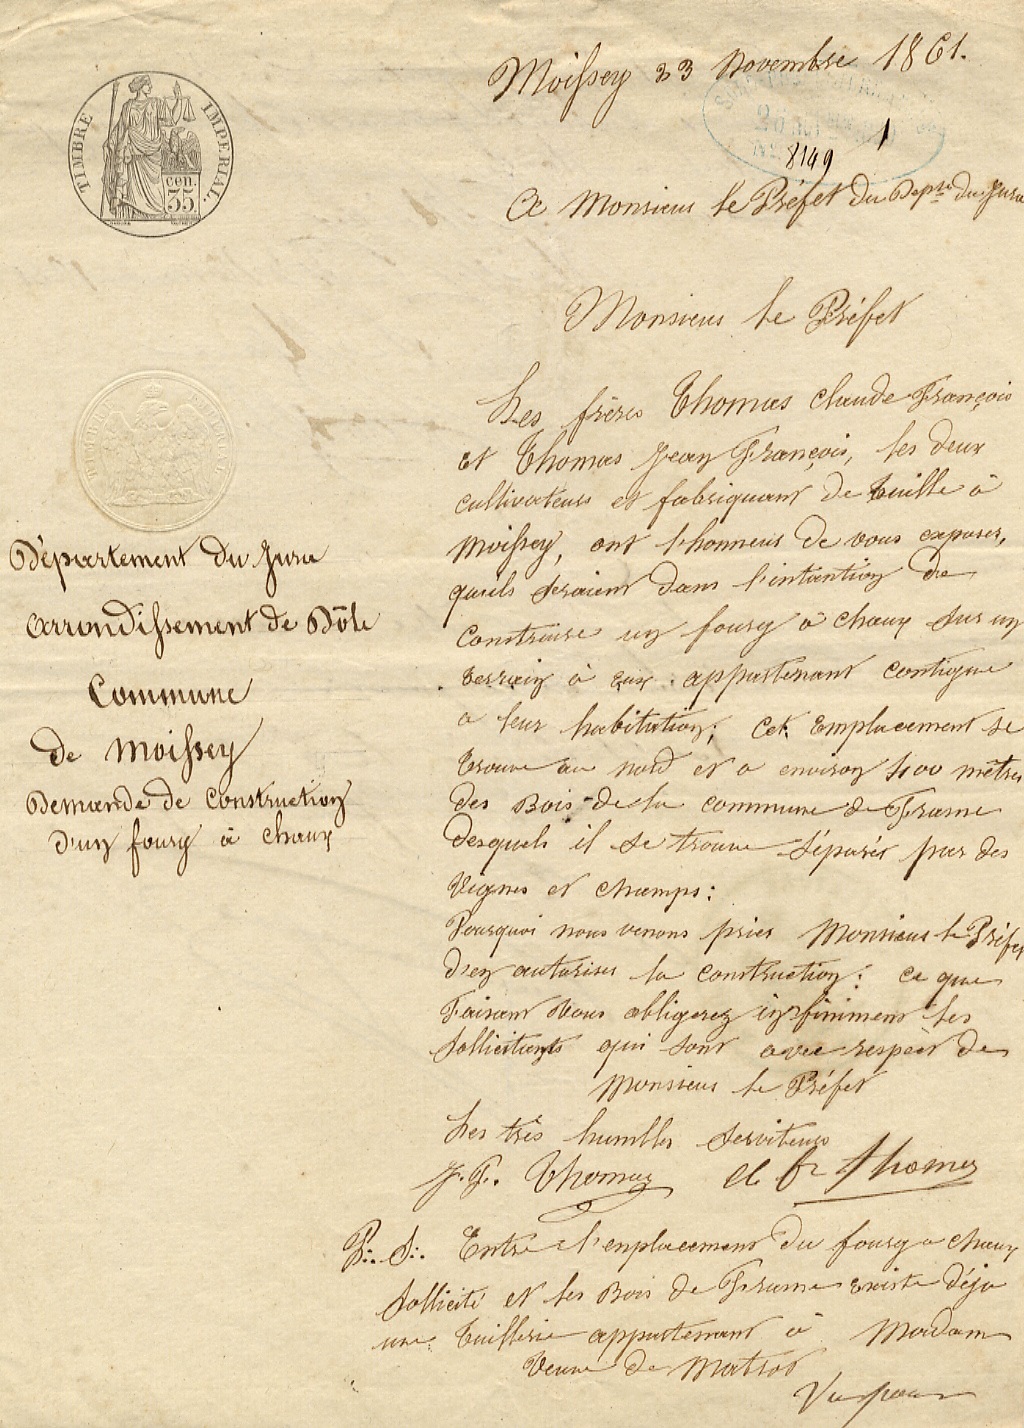 Moissey 23 Novembre 1861.
TIMBRE IMPERIAL.
cen.
35
1
8149
A Monsieur le Préfet du Dépt du Jura
Monsieur le Préfet
Les frères Thomas Claude François
et Thomas Jean François, les deux
cultivateurs et fabriquant de tuille à
Moissey, ont l'honneur de vous exposer,
qu'ils seraient dans l'intention de
Construire un fourg à chaux sur un
terrain à eux appartenant contigue
a leur habitation; Cet Emplacement se
trouve au nord et a environ 400 mètres
des Bois de la commune de Frasne
desquels il se trouve séparés par des
Vignes et champs:
Pourquoi nous venons prier Monsieur le Préfet
d'en autoriser la construction: ce que
Faisant Vous obligerez infiniment les
sollicitants qui sont avec respect de
Monsieur le Préfet
Les très humbles serviteurs
J. F. Thomas cl fr thomas
P.. S.. Entre l'enplacement du fourg a chaux
sollicité et les Bois de Frasne existe déja
une tuillerie appartenant à Madam
Veuve de Matrot
Vu pour
Département du Jura
Arrondissement de Dôle
Commune
de Moissey
Demande de Construction
d'un fourg à chaux